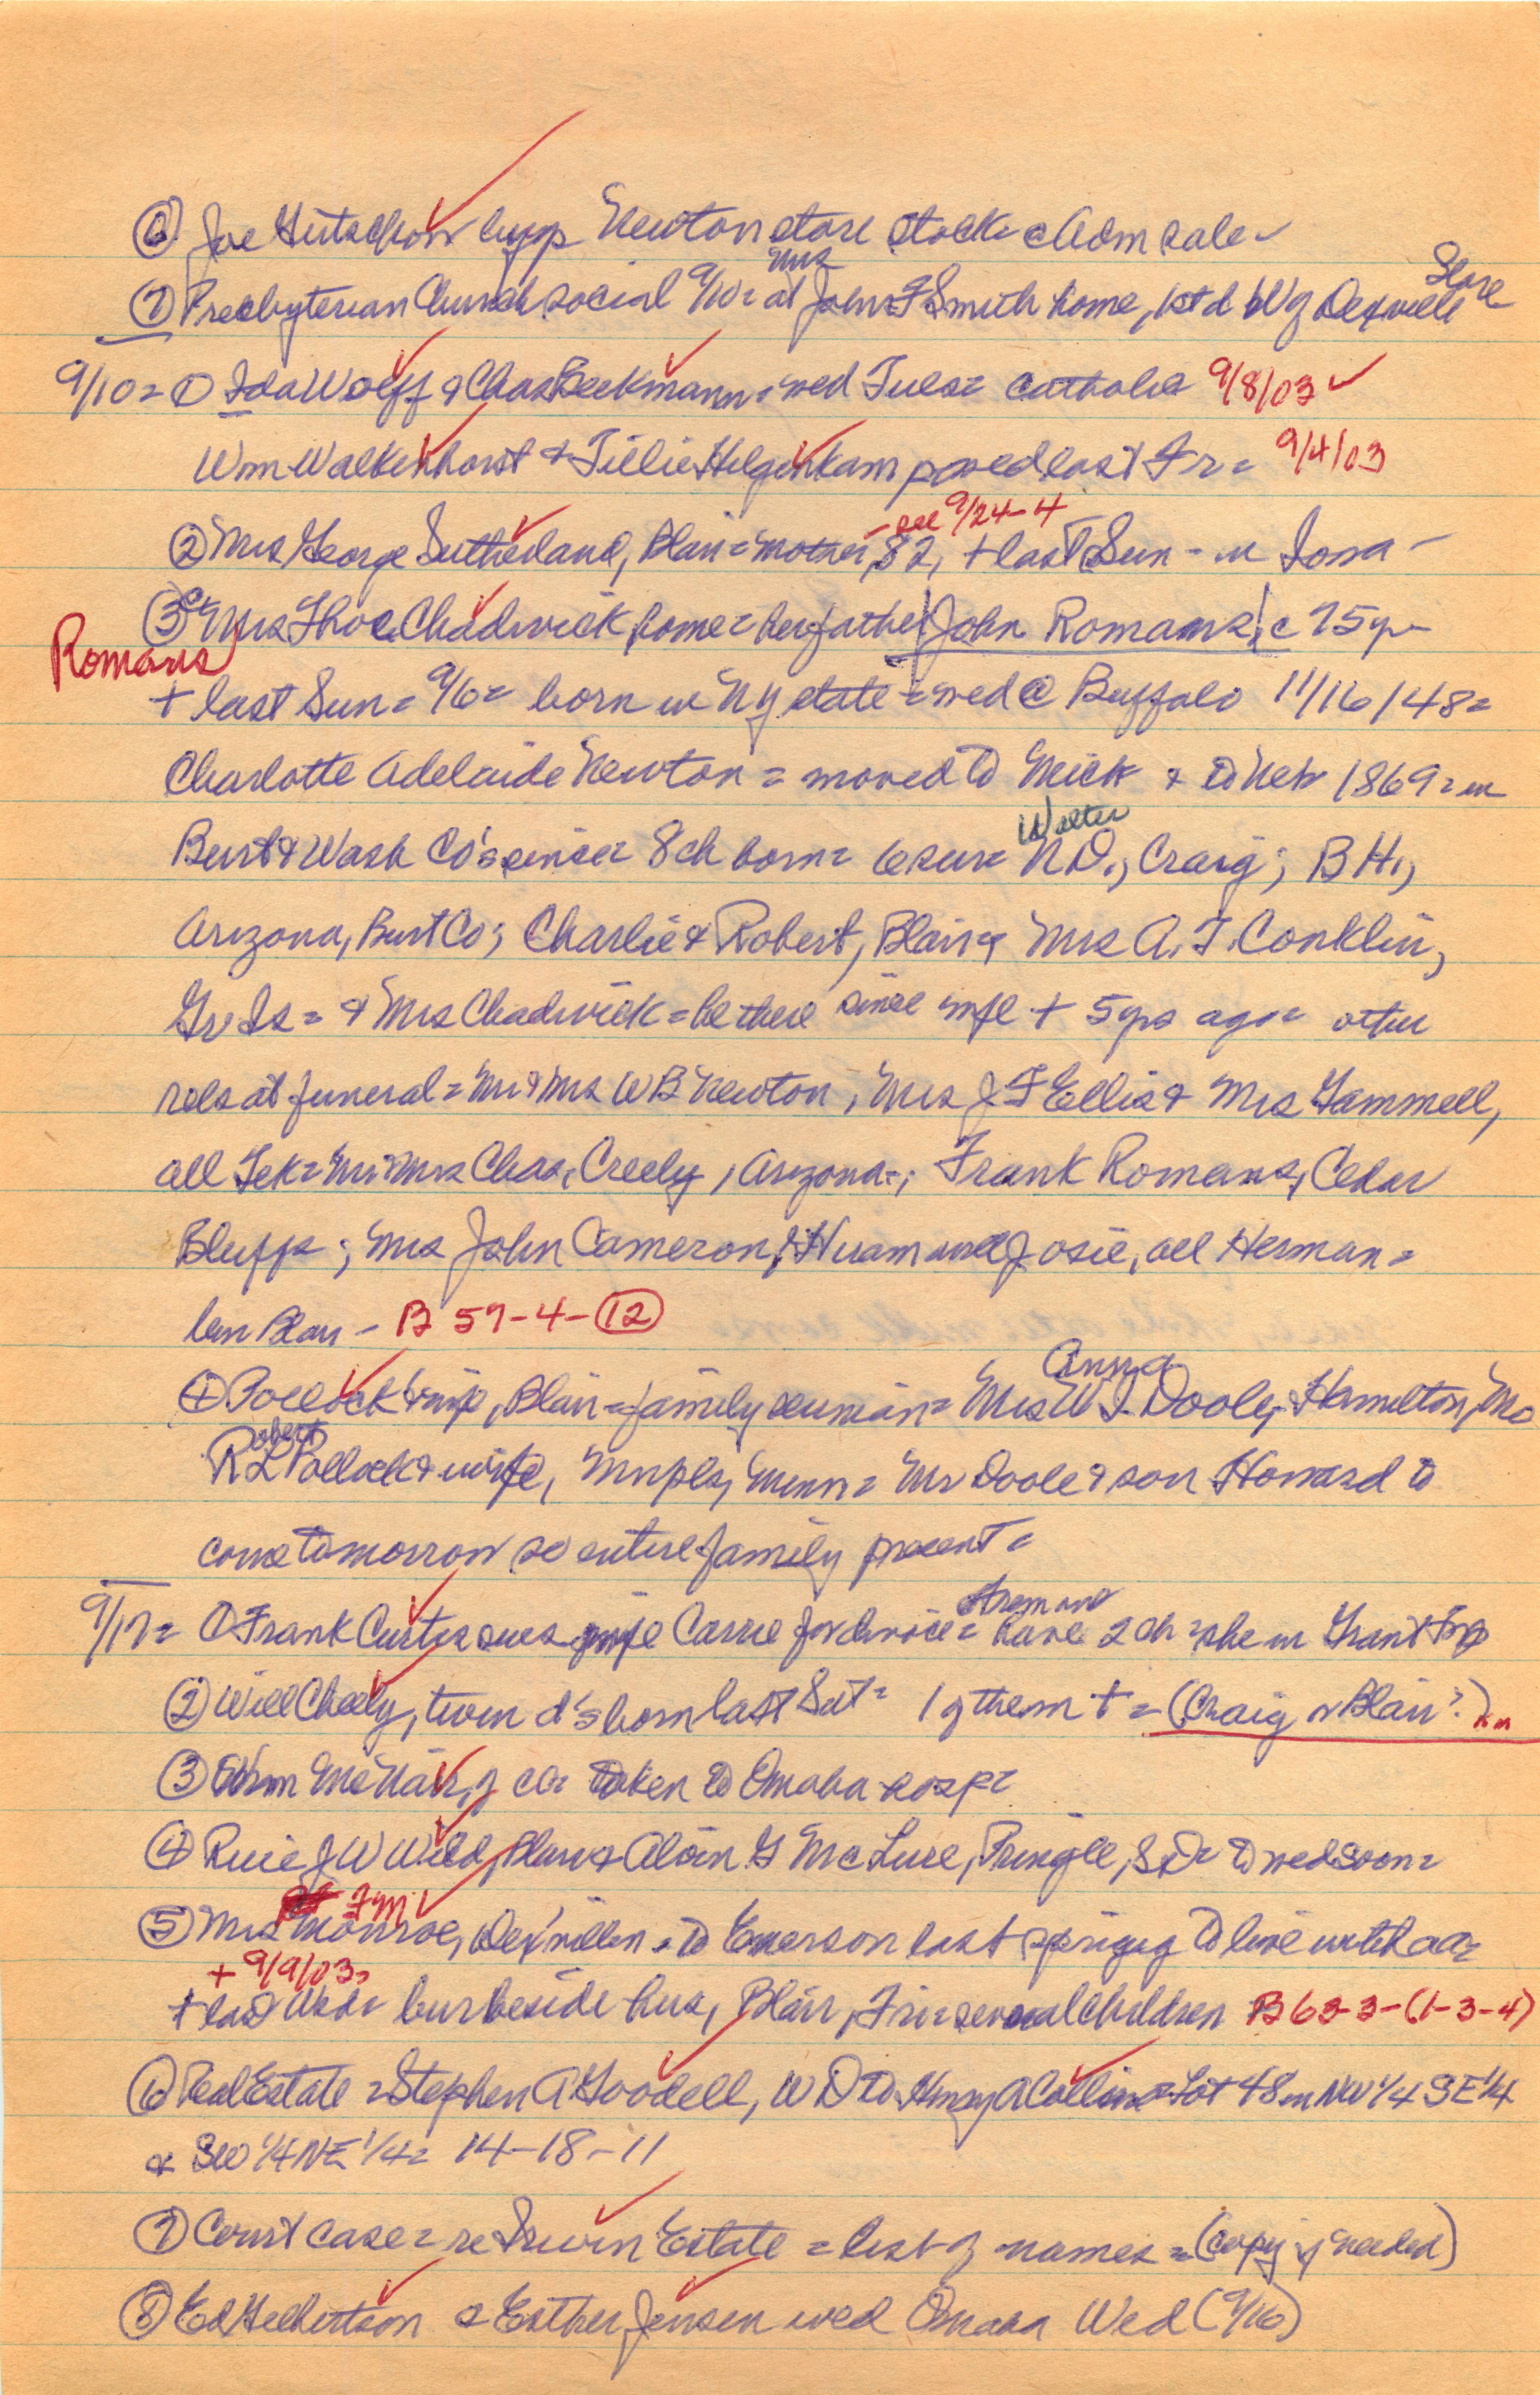 ⑥ Joe buys Newton store stock @ Adm sale
Store
Mrs
⑦ Presbyterian Church social 9/10 = at John F Smith home, 1st d W of Dexville
9/10 = ① Ida Wolff & Chas Beckmann = wed Tues = Catholic 9/8/03
Wm Walkenhorst & Tillie Hilgenkamp wed last Fr = 9/4/03
- see 9/24-4
② Mrs George Sutherland, Blair = mother, 82, + last Sun - in Iowa -
③ @ Mrs Thos Chadwick home = her father John Romans, c 75 yr -
Romans
+ last Sun = 9/6 = born in NY state = wed @ Buffalo 11/16/48 =
Charlotte Adelaide Newton = moved to Mich & to Neb 1869 = in
Walter
Burt & Wash Co's since = 8 ch born = 6 sur = N.D., Craig; B H,
Arizona, Burt Co; Charlie & Robert, Blair & Mrs A. T. Conklin,
Gr Is = & Mrs Chadwick = he there since wife + 5 yrs ago = other
rels at funeral = Mr & Mrs W B Newton, Mrs J F Ellis & Mrs Gammell,
all Tek = Mr & Mrs Chas. Creely, Arizona; Frank Romans, Cedar
Bluffs; Mrs John Cameron, Hiram and Josie, all Herman =
bur Blair - B 57-4-⑫
Anna
④ Pollock & wife, Blair = family reunion = Mrs W I Dooley, Hamilton, Mo
Robert
R L Pollock & wife, Mnpls, Minn = Mr Doole & son Howard to
come tomorrow so entire family present =
9/17 = ① Frank Curtis sues wife Carrie for divorce = have 2 ch = she in Grant Twp
② Will Cheely, twin d's born last Sat = 1 of them + = (Craig or Blair?)
③ Wm McNair, of co = taken to Omaha hosp =
④ Ruie J W Wild, Blair & Alvin G McLure, Pringle, S D = to wed soon =
F M
⑤ Mrs Monroe, Dex'villen = to Emerson last spring to live with =
+ 9/9/03
+ last Wed = bur beside hus, Blair, Fri = several children B 63-3-(1-3-4)
⑥ Real Estate = Stephen A Goodell, W D to Henry A Collins = Lot 48 in NW 1/4 SE 1/4
& SW 1/4 NE 1/4 = 14-18-11
⑦ Court case = re Irwin Estate = list of names = (copy if needed)
⑧ Ed Gilbertson & Esther Jensen wed Omaha Wed (9/16)